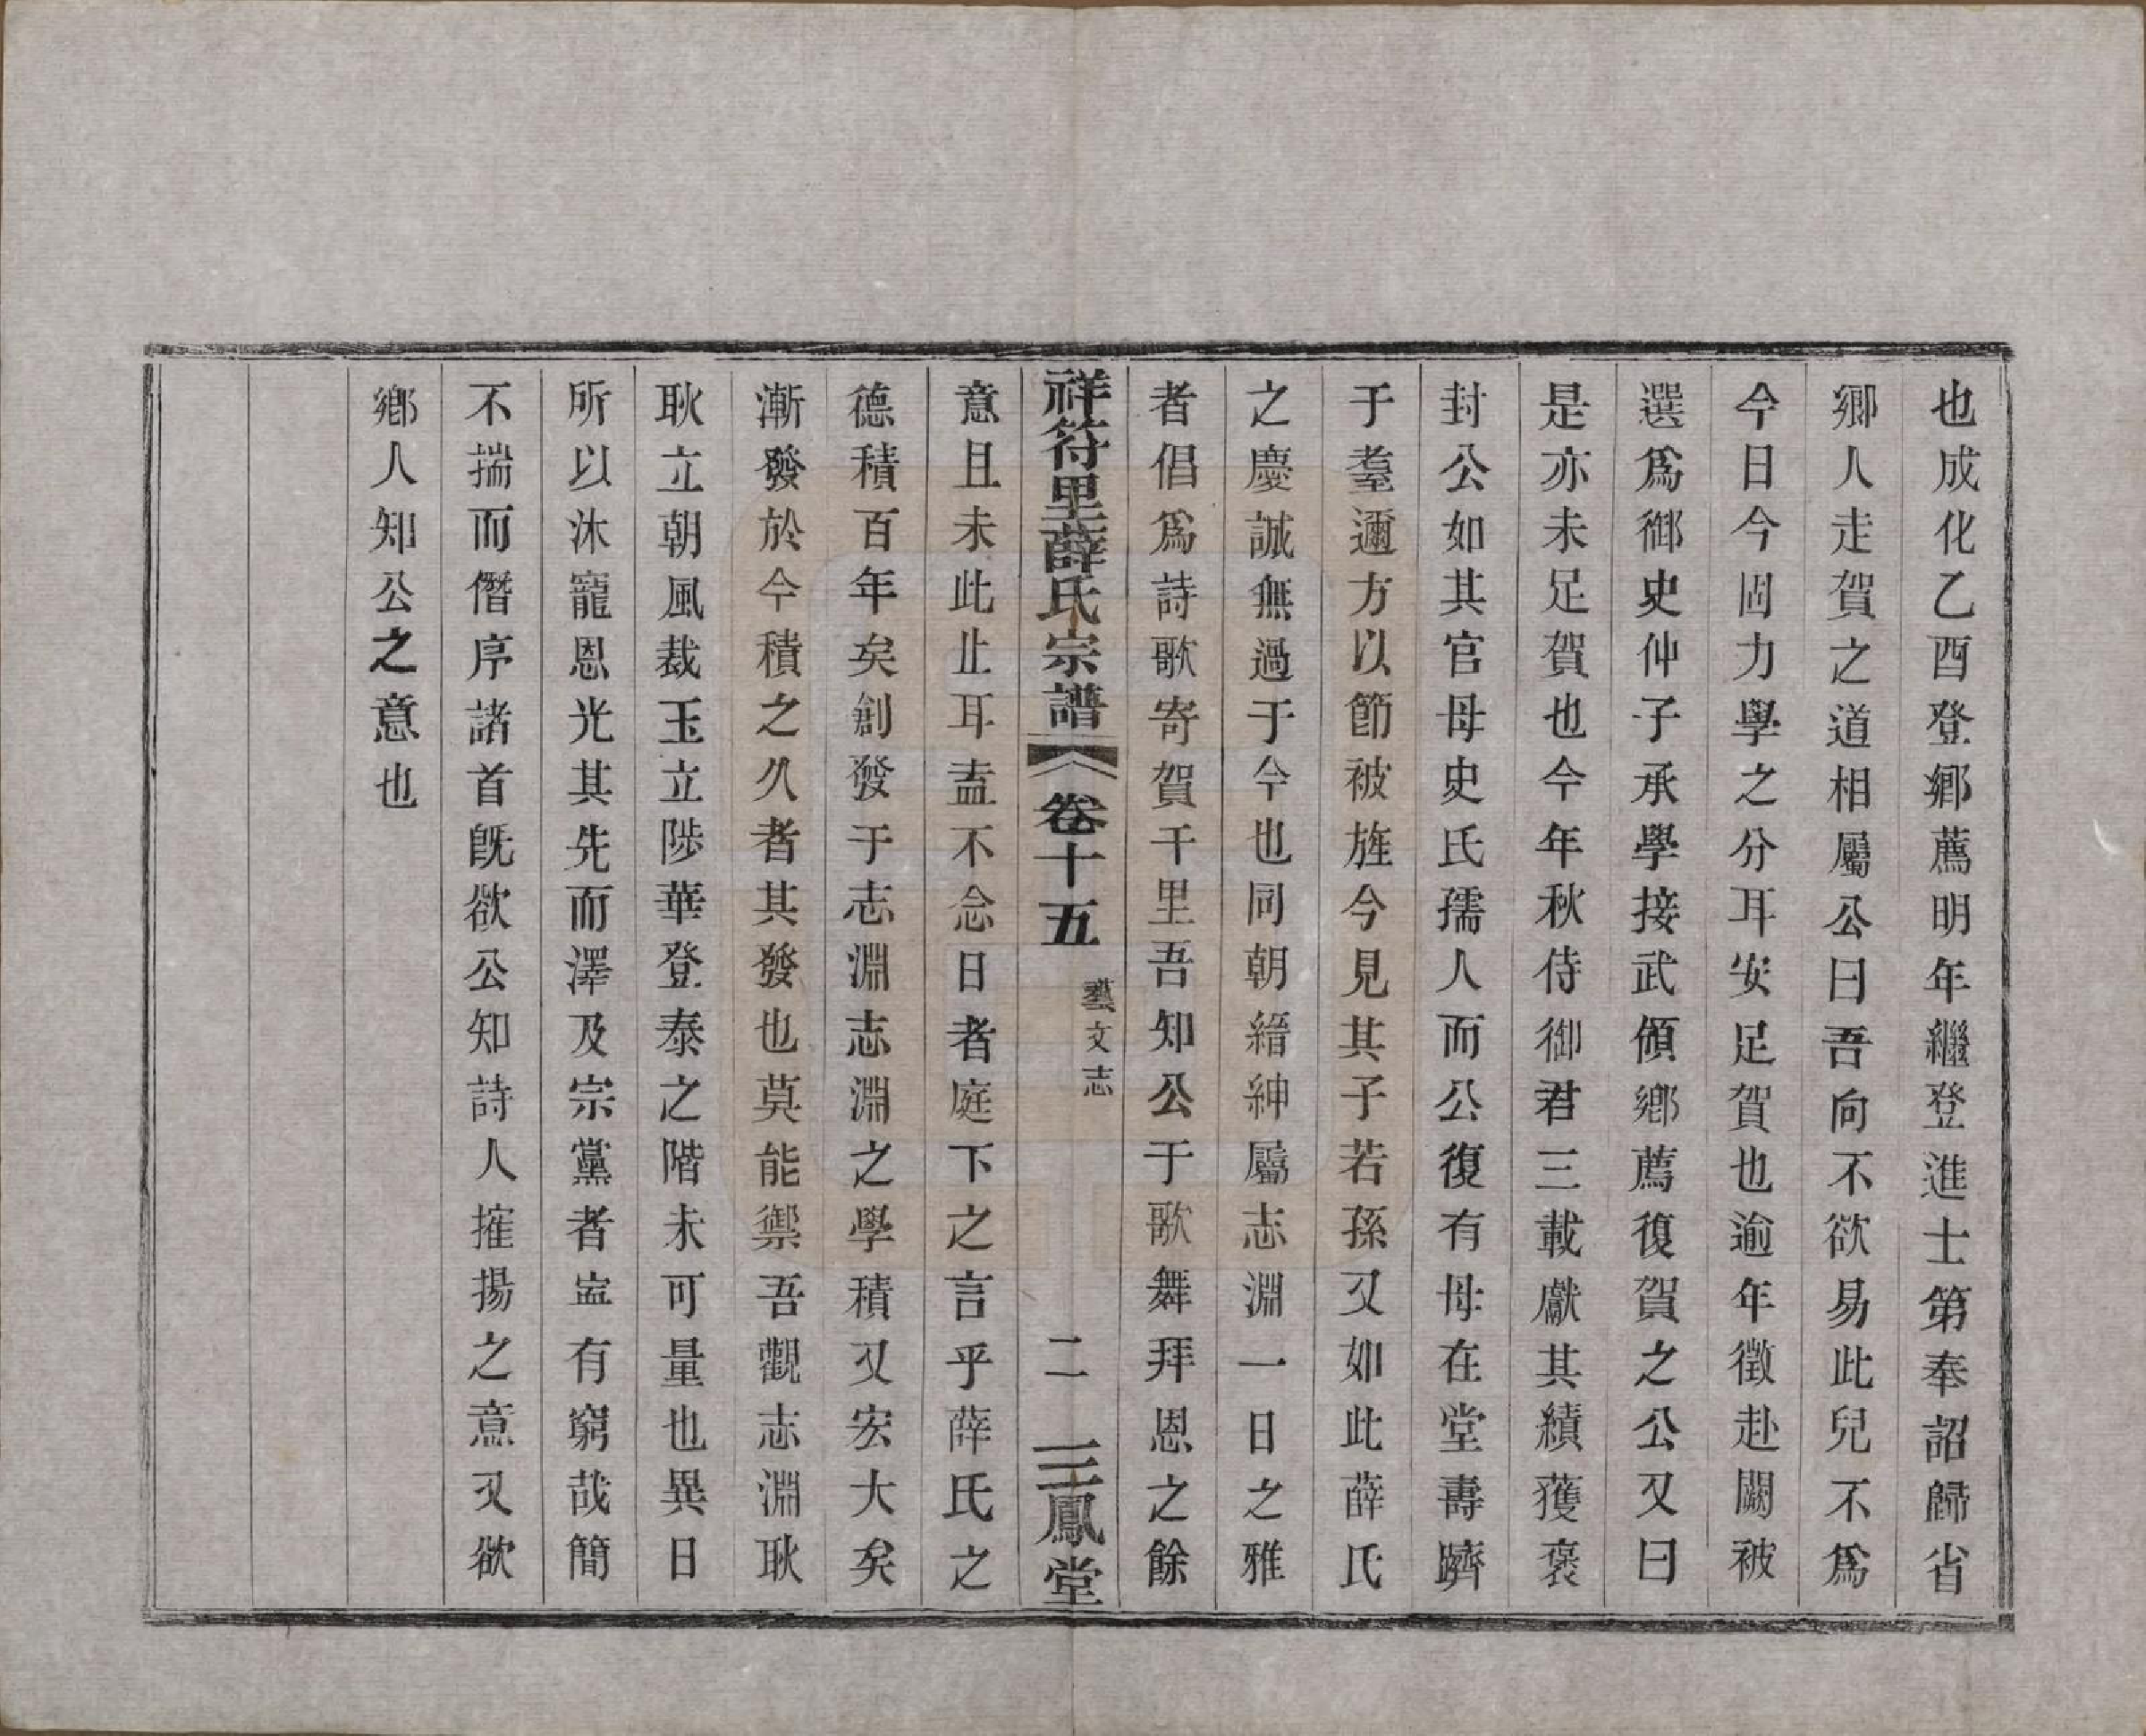 也成化乙酉登鄉薦明年繼登進士第奉詔歸省
鄉人走賀之道相屬公曰吾向不欲易此兒不爲
今日今固力學之分耳安足賀也逾年徵赴闕被
選爲御史仲子承學接武傾鄉薦復賀之公又曰
是亦未足賀也今年秋侍御君三載獻其績獲褒
封公如其官母史氏孺人而公復有母在堂壽躋
于耋邇方以節被旌今見其子若孫又如此薛氏
之慶誠無過于今也同朝縉紳屬志淵一日之雅
者倡爲詩歌寄賀千里吾知公于歌舞拜恩之餘
祥符里薛氏宗譜 卷十五 藝文志 二 三鳳堂
意且未此止耳盍不念日者庭下之言乎薛氏之
德積百年矣創發于志淵志淵之學積又宏大矣
漸發於今積之久者其發也莫能禦吾觀志淵耿
耿立朝風裁玉立陟華登泰之階未可量也異日
所以沐寵恩光其先而澤及宗黨者寍有窮哉簡
不揣而僭序諸首旣欲公知詩人搉揚之意又欲
鄉人知公之意也